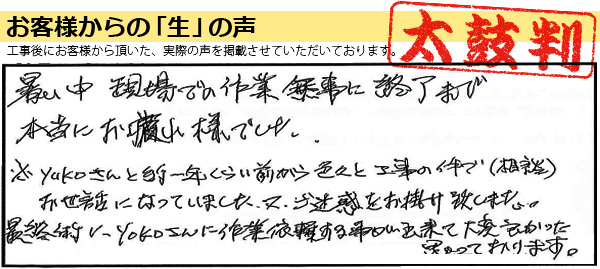 お客様からの「生」の声
工事後にお客様から頂いた、実際の声を掲載させていただいております。
太鼓判
暑い中 現場での作業 無事に終了まで
本当にお疲れ様でした。
※YOKOさんと約一年くらい前から色々と工事の件で(相談)
お世話になっていました。又、ご迷惑をお掛け致しました。
最終的に、YOKOさんに作業依頼する事が出来て大変良かったと
思っております。